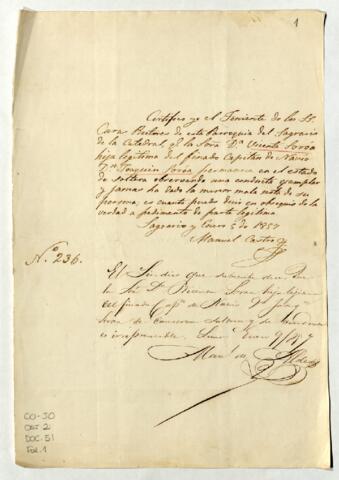 1
Certifico yo el Teniente de los SS.
Cura Rectores de esta Parroquia del Sagrario
de la Catedral, q.e la Sora. D.a Vicenta Sorōa
hija legitima del finado Capitan de Navio
Dn. Joaquin Soroa permanece en el estado
de soltera observando una conducta ejemplar
y jamas ha dado la menor mala nota de su
persona, es cuanto puedo decir en obsequio de la
verdad a pedimento de parte legitima
Sagrario y Enero 5 de 1857
Manuel Castro
N.o 236.
El Sindico que subscribe
D.a hija legitima
del finado Cap.n de Navio
Soroa se conserva soltera y de
es irreprensible. Lima Enero 9/857
Man.l
CO1-JO
CAJ: 2
DOC: 51
Fol: 1